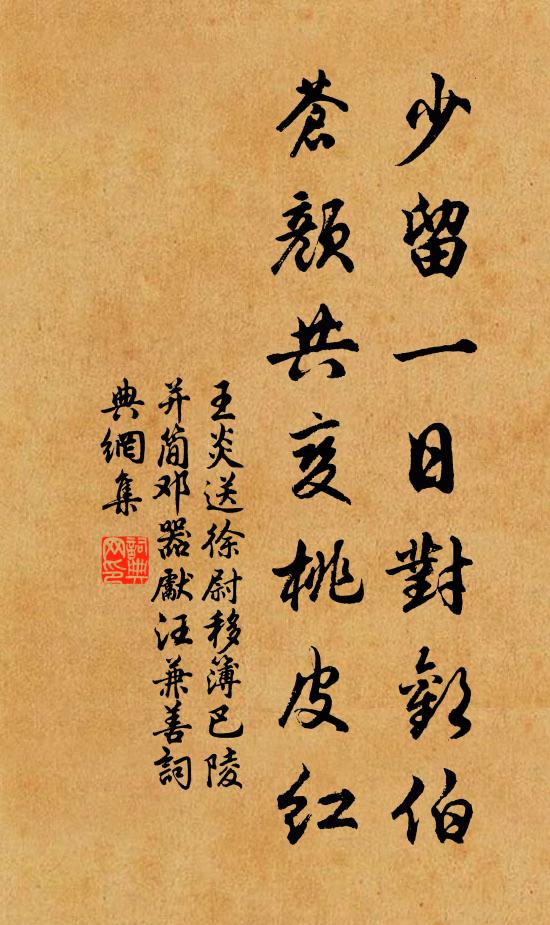 少留一日對歡伯
蒼顏共变桃皮紅
王炎送徐尉移簿巴陵
并简邓器獻汪兼善詞
典網集
詞典網印